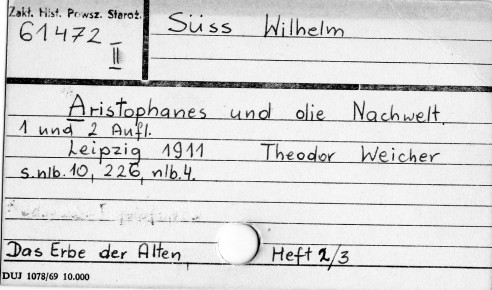 Zakł. Hist. Powsz. Staroż.
61472
II
Süss Wilhelm
Aristophanes und die Nachwelt.
1 und 2 Aufl.
Leipzig 1911 Theodor Weicher
s.nlb.10, 226, nlb.4.
Das Erbe der Alten, Heft 2/3
DUJ 1078/69 10.000